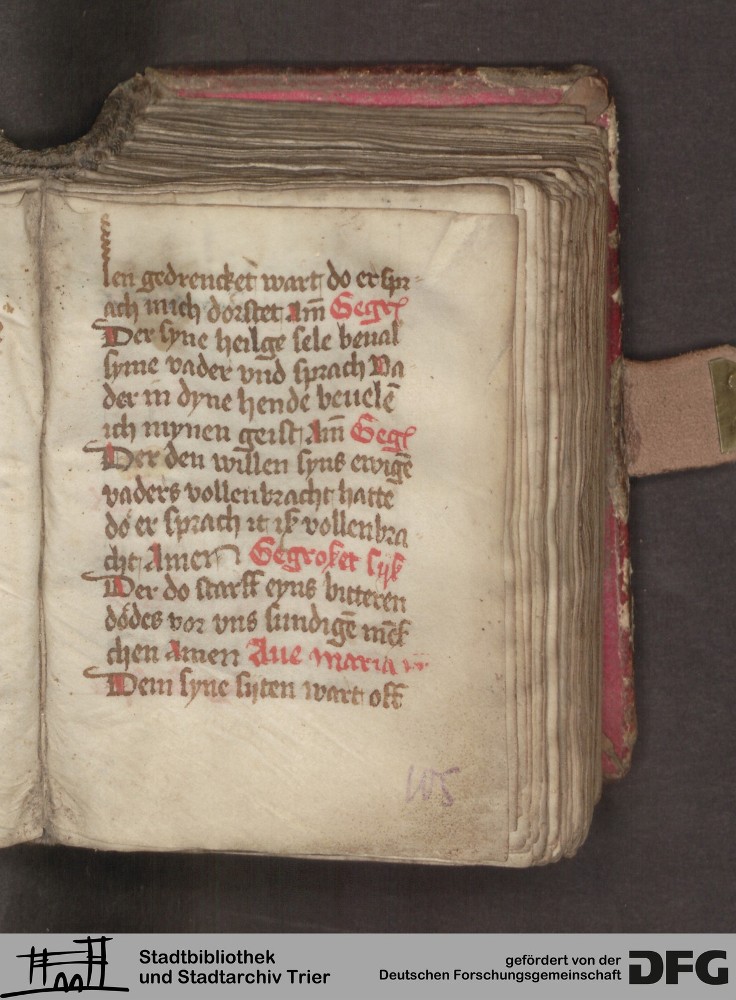 len gedrencket wart do er spr
ach mich dorstet Am̄ Gegr
Der syne heilge sele beual
syme vader vnd sprach Va
der in dyne hende beuelē
ich mynen geist Am̄ Geg
Der den willen syns ewigē
vaders vollenbracht hatte
do er sprach it is vollenbra
cht Amen Gegroket sijs
Der do starff eyns bitteren
dodes vor vns sundigē mēs
chen Amen Aue maria
Dem syne sijten wart off
105
Stadtbibliothek
und Stadtarchiv Trier
gefördert von der
Deutschen Forschungsgemeinschaft
DFG